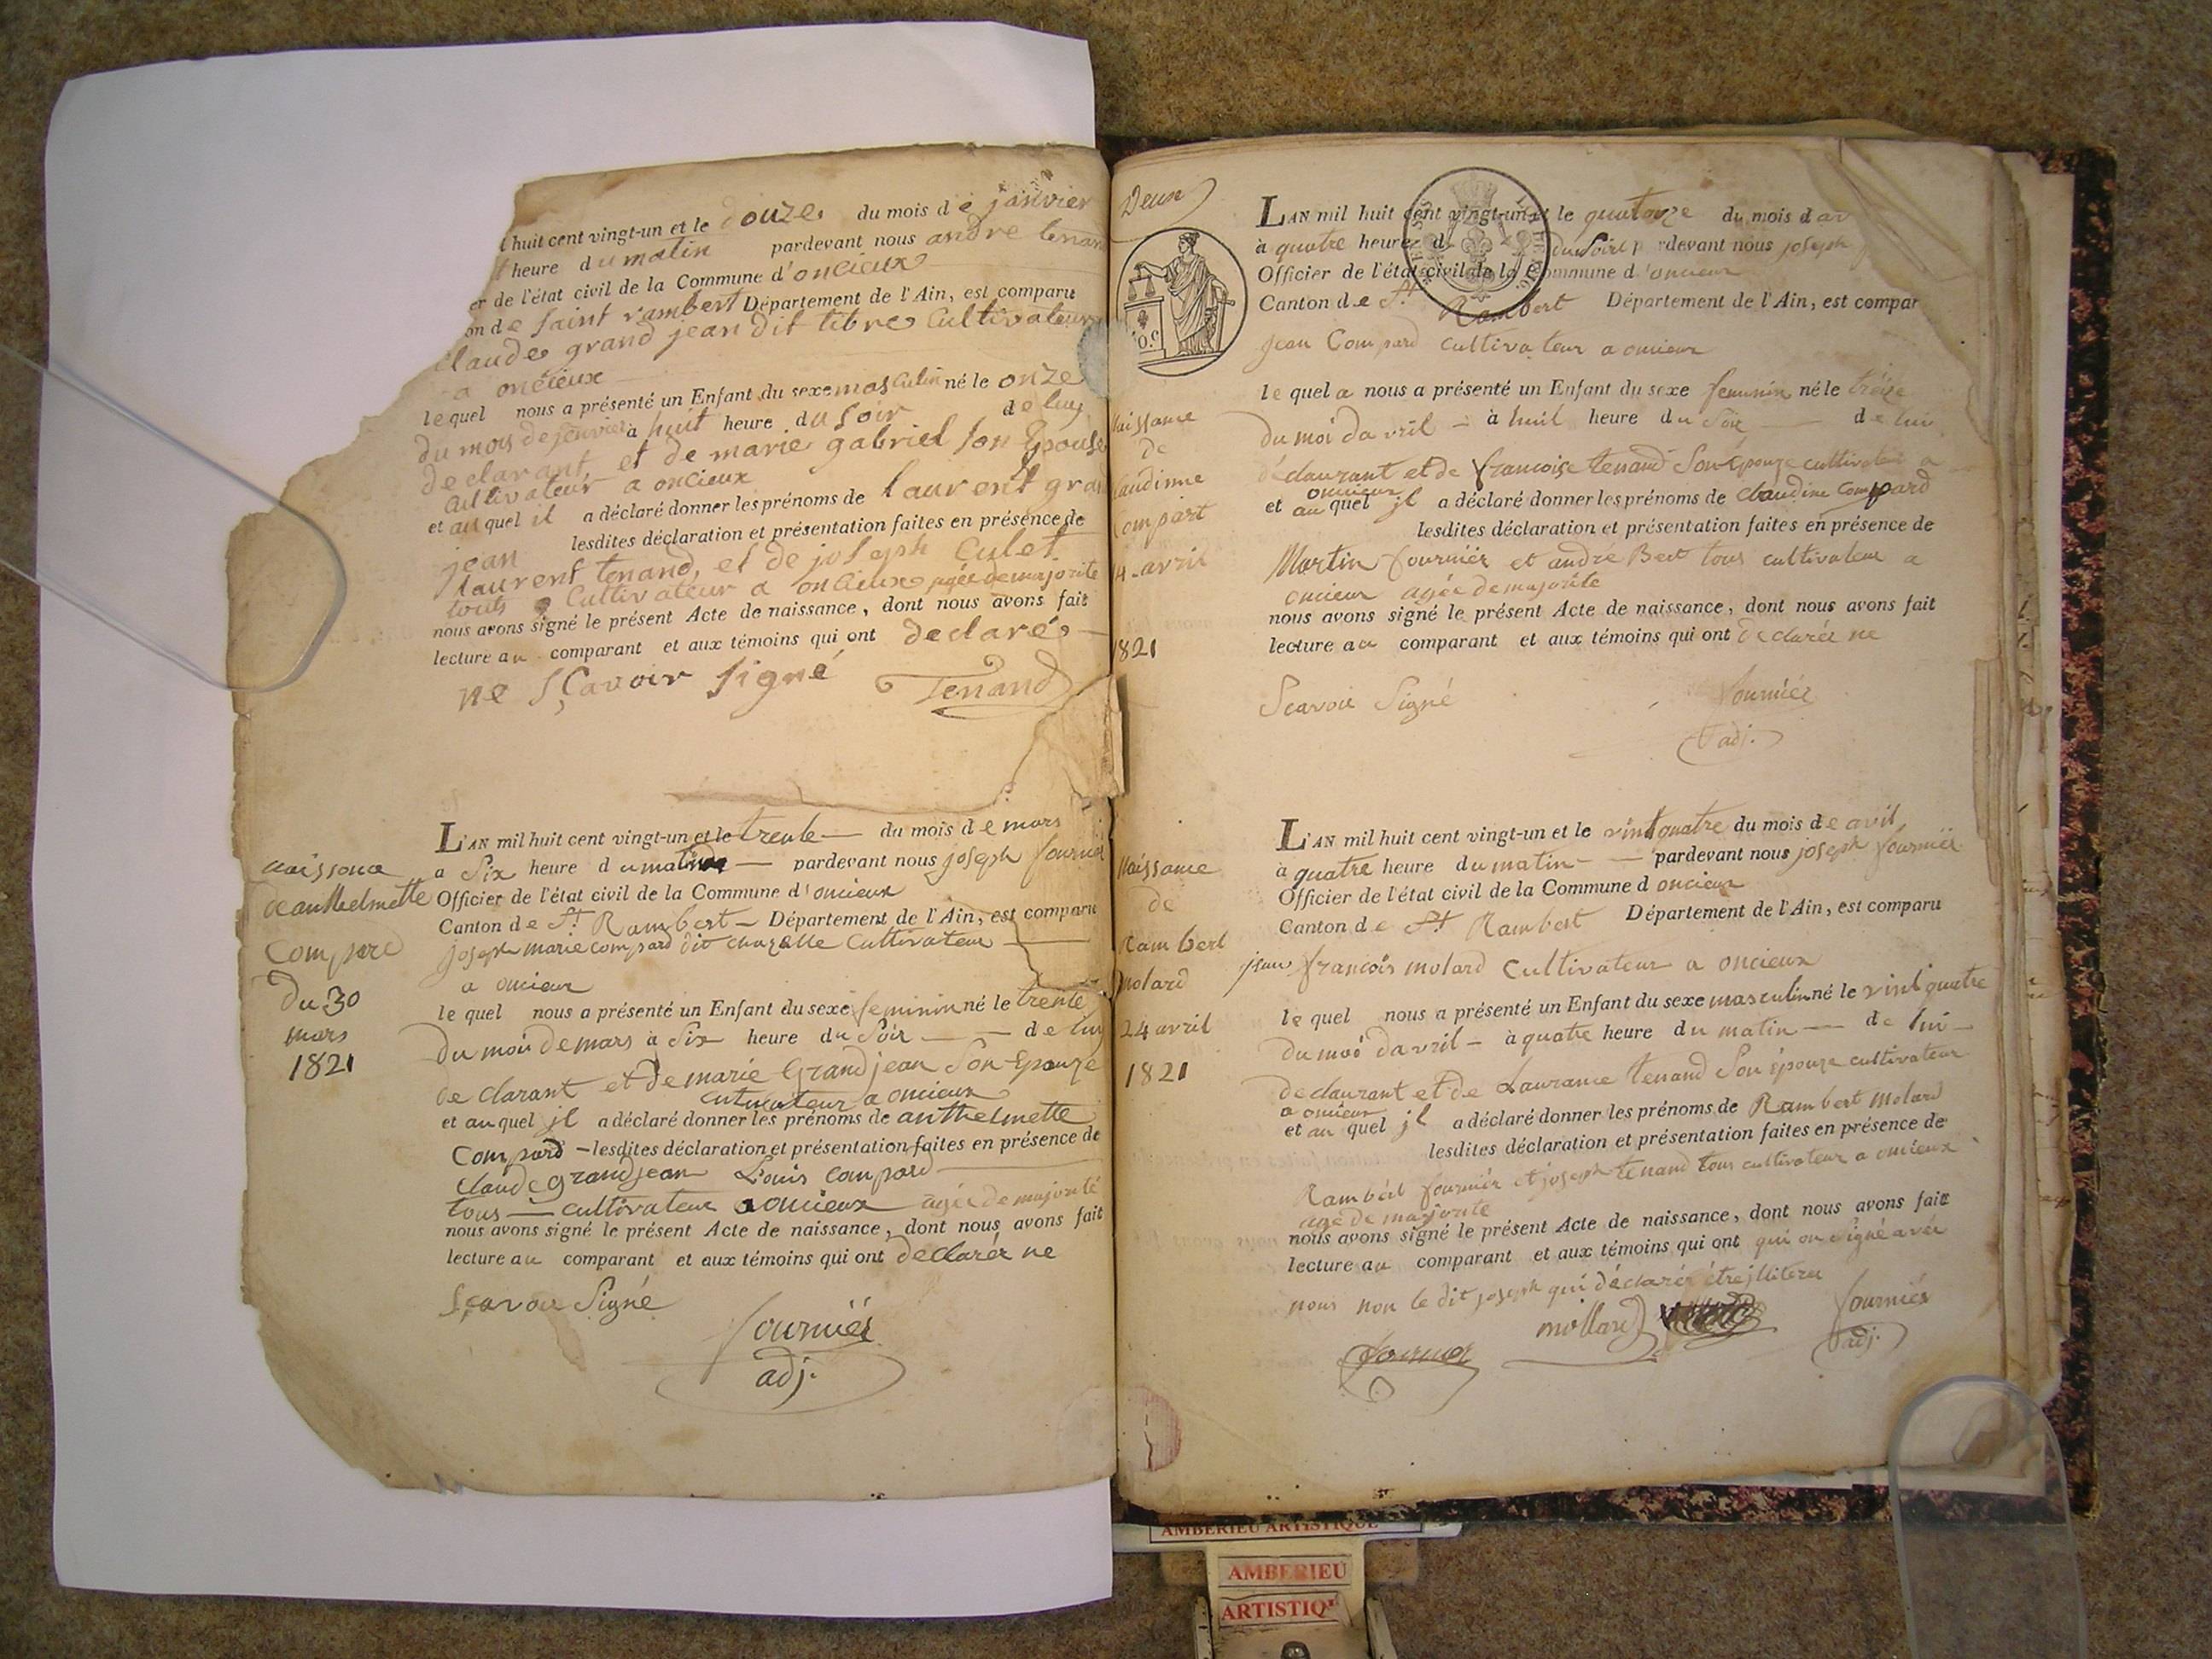 t huit cent vingt-un et le douze du mois de janvier
t heure du matin pardevant nous andre tenan
er de l'état civil de la Commune d'oncieux
on de saint rambert Département de l'Ain, est comparu
Claude grand jean dit libre Cultivateur
a oncieux
lequel nous a présenté un Enfant du sexe masculin né le onze
du mois de janvier à huit heure du soir de luy
declarant, et de marie gabriel son Epouse
Cultivateur a oncieux
et au quel il a déclaré donner les prénoms de laurent grand
jean lesdites déclaration et présentation faites en présence de
laurent tenand, et de joseph Culet
touts Cultivateur a oncieux agée de majorite
nous avons signé le présent Acte de naissance, dont nous avons fait
lecture au comparant et aux témoins qui ont declarés
ne sçavoir signé Tenand
naissance
de anthelmette
Compard
Du 30
mars
1821
L'AN mil huit cent vingt-un et le trente du mois de mars
a Six heure du matin pardevant nous joseph fournier
Officier de l'état civil de la Commune d'oncieux
Canton de St. Rambert Département de l'Ain, est comparu
joseph marie compard dit Cultivateur
a oncieux
le quel nous a présenté un Enfant du sexe feminin né le trente
Du moi de mars à Six heure du Soir de luy
de clarant et de marie Grandjean Son Epouze
cultivateur a oncieux
et au quel jl a déclaré donner les prénoms de anthelmette
Compard lesdites déclaration et présentation faites en présence de
Claude grandjean Louis compard
tous cultivateur a oncieux agée de majorité
nous avons signé le présent Acte de naissance, dont nous avons fait
lecture au comparant et aux témoins qui ont declarér ne
Sçavoir Signé
fourniér
adj.
Deux
naissance
de
Claudinne
Compart
14 avril
1821
LAN mil huit cent vingt-un et le quatorze du mois d av
à quatre heure d du Soir pardevant nous joseph
Officier de l'état civil de la Commune d'oncieux
Canton de St. Rambert Département de l'Ain, est compar
jean Compard cultivateur a oncieux
le quel a nous a présenté un Enfant du sexe feminin né le treize
du moi davril à huit heure du Soir de lui
déclaurant et de francoise tenand Son épouze cultivateur a
oncieux
et au quel jl a déclaré donner les prénoms de Claudine Compard
lesdites déclaration et présentation faites en présence de
Martin fourniér et andre Bert tous cultivateur a
oncieux agée de majorite
nous avons signé le présent Acte de naissance, dont nous avons fait
lecture au comparant et aux témoins qui ont declarée ne
Scavoir Signé fourniér
adj.
Naissance
de
Rambert
Molard
24 avril
1821
L'AN mil huit cent vingt-un et le vint quatre du mois de avril
à quatre heure du matin pardevant nous joseph fourniér
Officier de l'état civil de la Commune d oncieux
Canton de St. Rambert Département de l'Ain, est comparu
jean francois molard Cultivateur a oncieux
le quel nous a présenté un Enfant du sexe masculin né le vint quatre
du moi davril à quatre heure du matin de lui
declaurant et de Laurance tenand Son épouze cultivateur
a oncieux
et au quel jl a déclaré donner les prénoms de Rambert Molard
lesdites déclaration et présentation faites en présence de
Rambert fourniér et joseph tenand tous cultivateur a oncieux
agé de majorite
nous avons signé le présent Acte de naissance, dont nous avons fait
lecture au comparant et aux témoins qui ont qui on Signé avec
nous non le dit joseph qui déclaré être jlliteré
mollard fourniér
fournier adj.
AMBERIEU ARTISTIQUE
AMBERIEU
ARTISTIQ